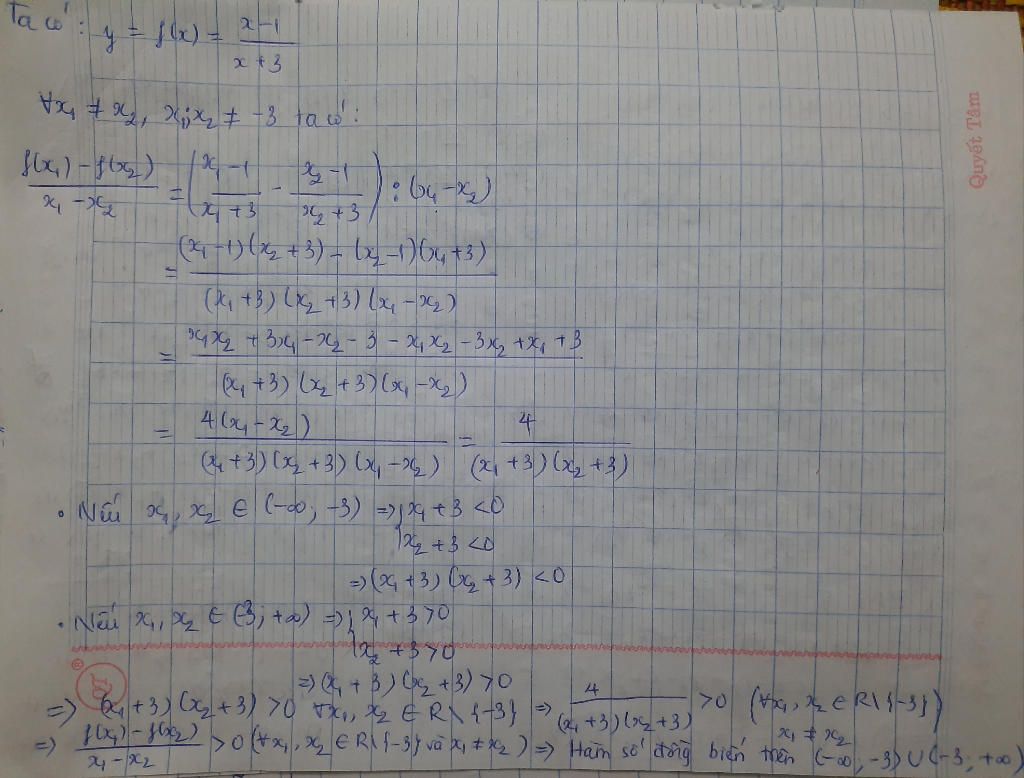 Ta có : y = f(x) = \frac{x-1}{x+3}
∀x₁ ≠ x₂, x₁;x₂ ≠ -3 ta có :
\frac{f(x₁) - f(x₂)}{x₁ - x₂} = \left(\frac{x₁-1}{x₁+3} - \frac{x₂-1}{x₂+3}\right) : (x₁ - x₂)
= \frac{(x₁-1)(x₂+3) - (x₂-1)(x₁+3)}{(x₁+3)(x₂+3)(x₁-x₂)}
= \frac{x₁x₂ + 3x₁ - x₂ - 3 - x₁x₂ - 3x₂ + x₁ + 3}{(x₁+3)(x₂+3)(x₁-x₂)}
= \frac{4(x₁-x₂)}{(x₁+3)(x₂+3)(x₁-x₂)} = \frac{4}{(x₁+3)(x₂+3)}
• Nếu x₁, x₂ ∈ (-∞; -3) => { x₁ + 3 < 0
x₂ + 3 < 0
=> (x₁+3)(x₂+3) < 0
• Nếu x₁, x₂ ∈ (-3; +∞) => { x₁ + 3 > 0
x₂ + 3 > 0
=> (x₁+3)(x₂+3) > 0
=> (x₁+3)(x₂+3) > 0 ∀x₁, x₂ ∈ R\{-3} => \frac{4}{(x₁+3)(x₂+3)} > 0 (∀x₁, x₂ ∈ R\{-3})
x₁ ≠ x₂
=> \frac{f(x₁) - f(x₂)}{x₁ - x₂} > 0 (∀x₁, x₂ ∈ R\{-3} và x₁ ≠ x₂) => Hàm số đồng biến trên (-∞; -3) ∪ (-3; +∞)
Quyết Tâm
®